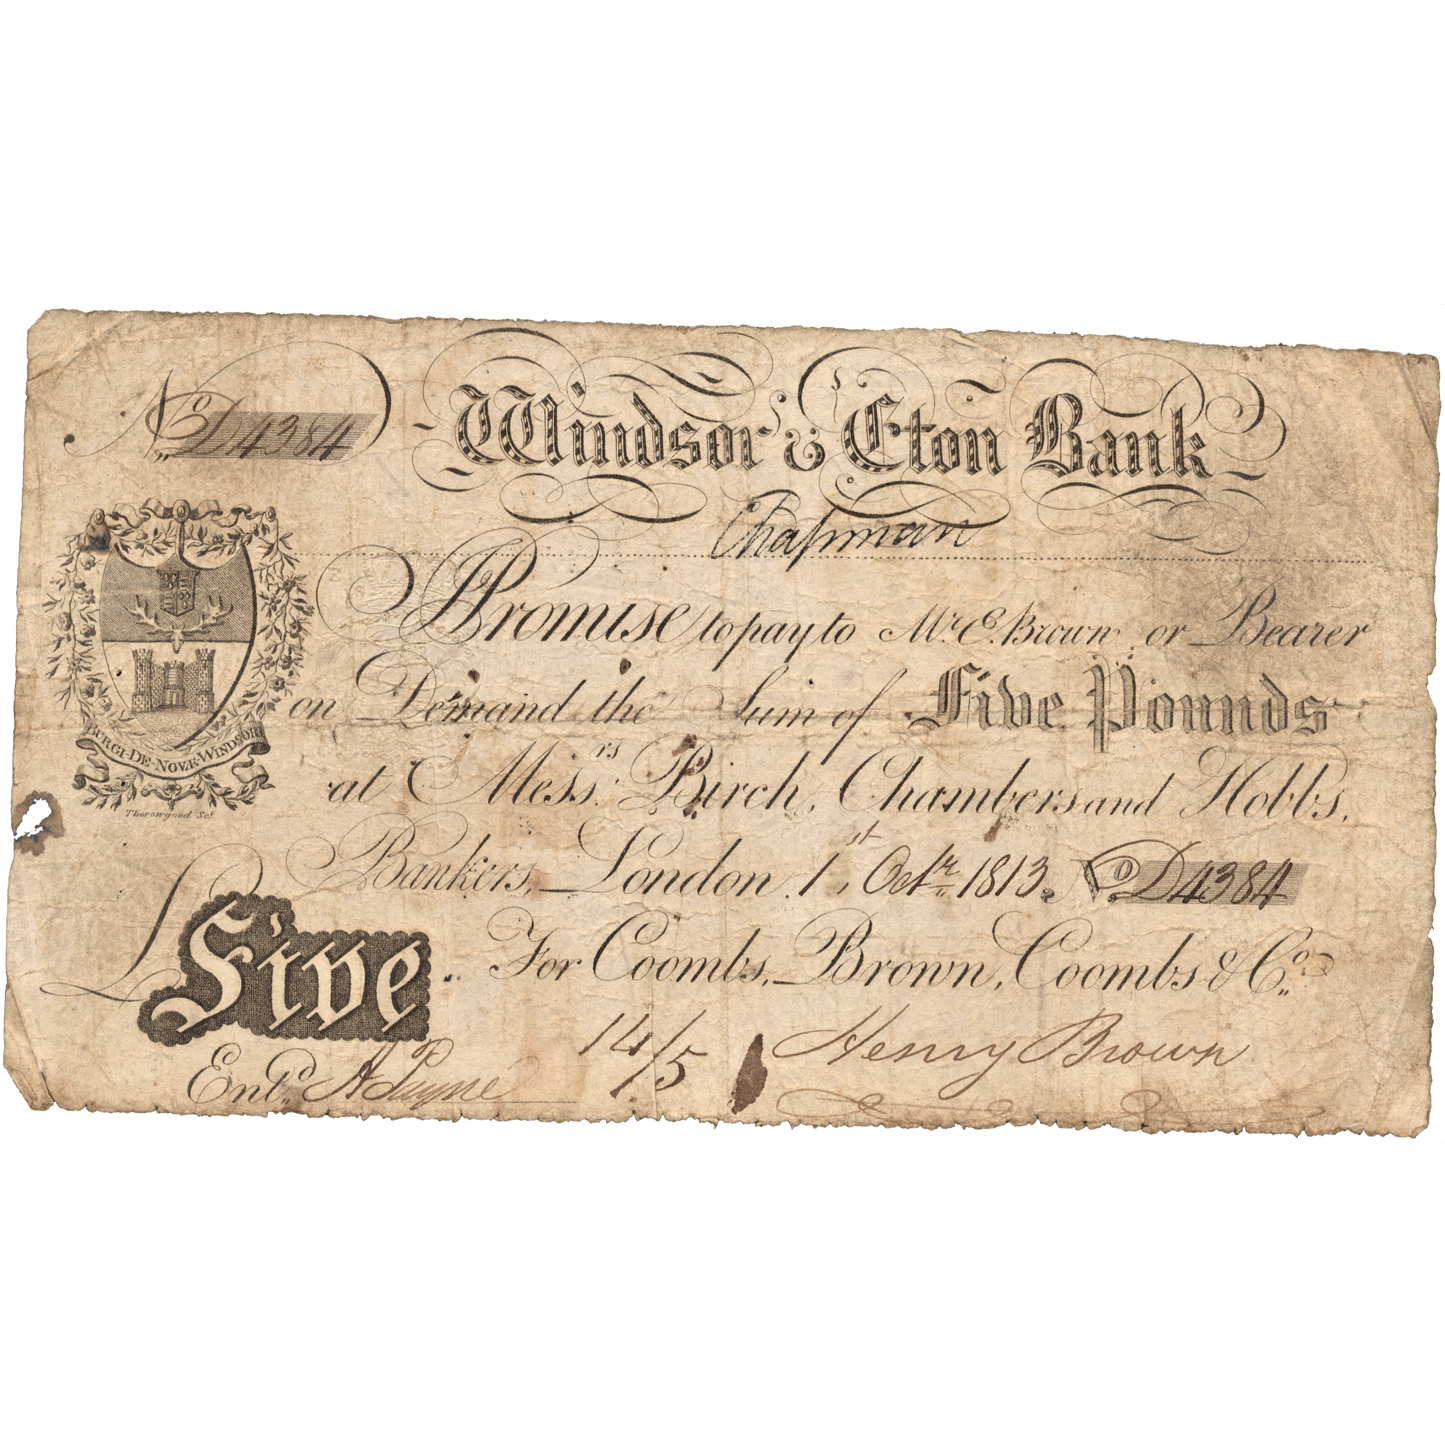 No. D4384
Windsor & Eton Bank
Chapman
I Promise to pay to Mr. E. Brown or Bearer
on Demand the Sum of Five Pounds
at Messrs. Birch, Chambers and Hobbs,
BURGI·DE·NOVÆ·WINDSOR
Thorowgood Sct.
Bankers, London 1st Octr. 1813. No. D4384
£ Five
For Coombs, Brown, Coombs & Co.
14/5 Henry Brown
Entd. A Payne